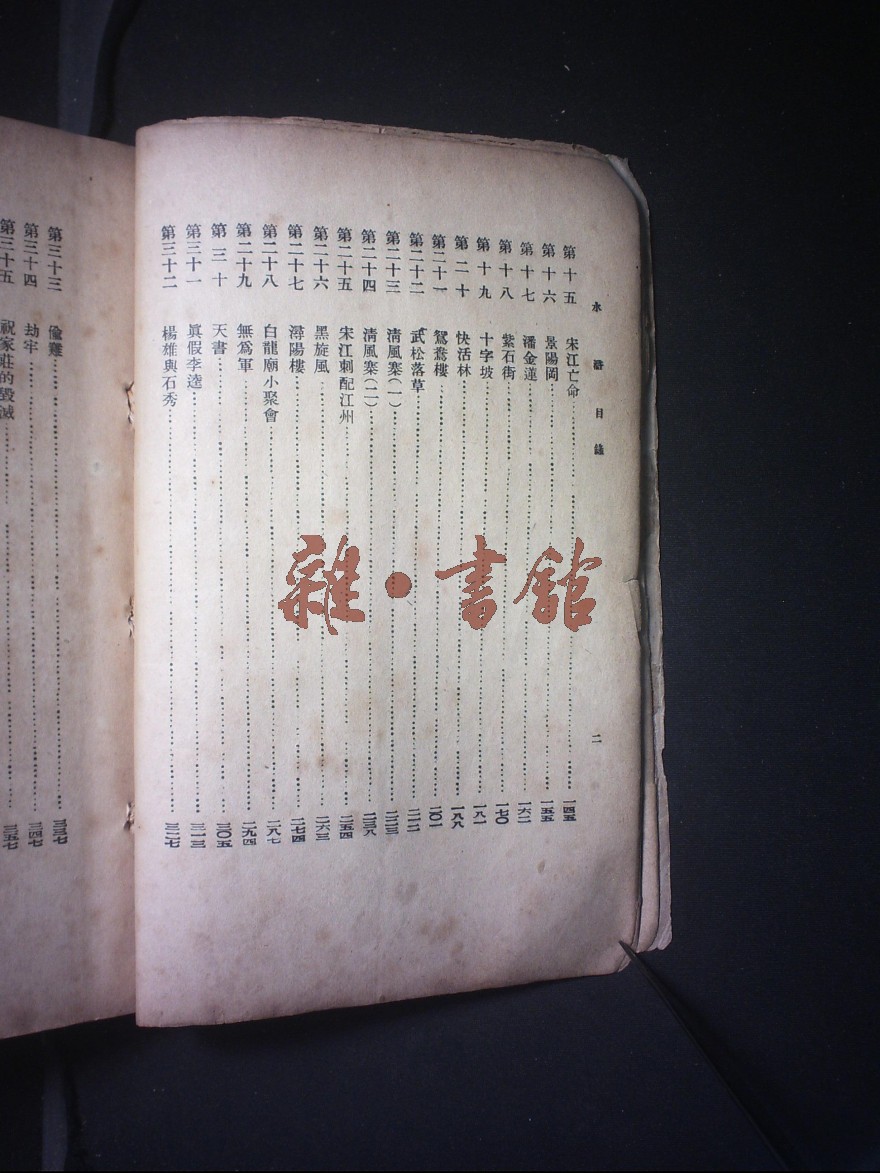 水滸目錄
二
第十五 宋江亡命 一四五
第十六 景陽岡 一五五
第十七 潘金蓮 一六二
第十八 紫石街 一七〇
第十九 十字坡 一八一
第二十 快活林 一八八
第二十一 鴛鴦樓 二〇一
第二十二 武松落草 二一二
第二十三 清風寨(一) 二二三
第二十四 清風寨(二) 二三八
第二十五 宋江刺配江州 二五四
第二十六 黑旋風 二六三
第二十七 潯陽樓 二七四
第二十八 白龍廟小聚會 二八七
第二十九 無爲軍 二九四
第三十 天書 三〇五
第三十一 眞假李逵 三一三
第三十二 楊雄與石秀 三二七
第三十三 偸雞 三三七
第三十四 劫牢 三四七
第三十五 祝家莊的毀滅 三五七
雜·書館